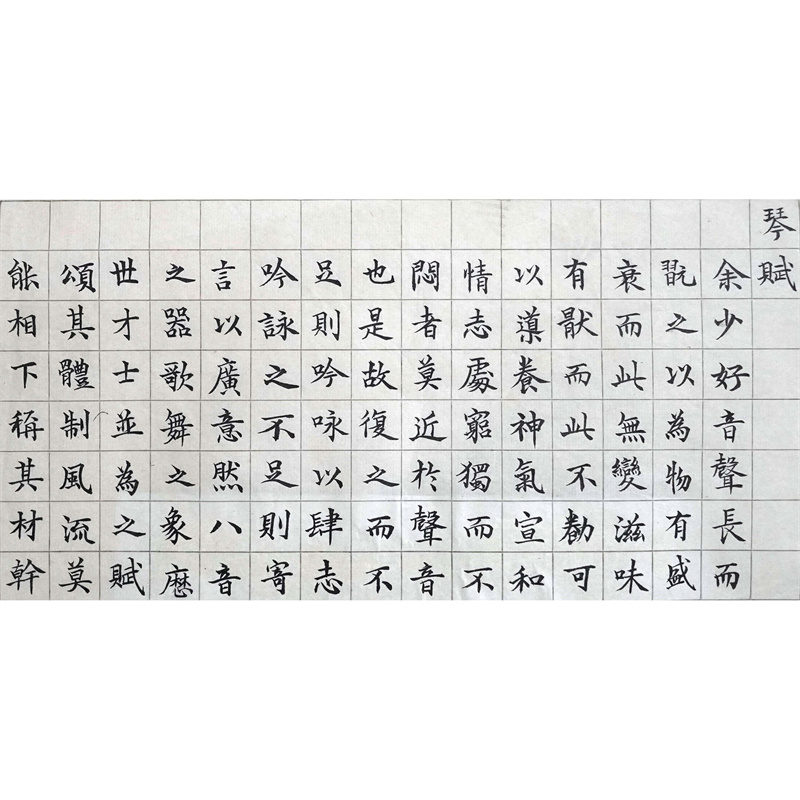 琴賦
余少好音聲長而
翫之以為物有盛
衰而此無變滋味
有猒而此不勌可
以導養神氣宣和
情志處窮獨而不
悶者莫近於聲音
也是故復之而不
足則吟咏以肆志
吟詠之不足則寄
言以廣意然八音
之器歌舞之象歷
世才士並為之賦
頌其體制風流莫
能相下稱其材幹